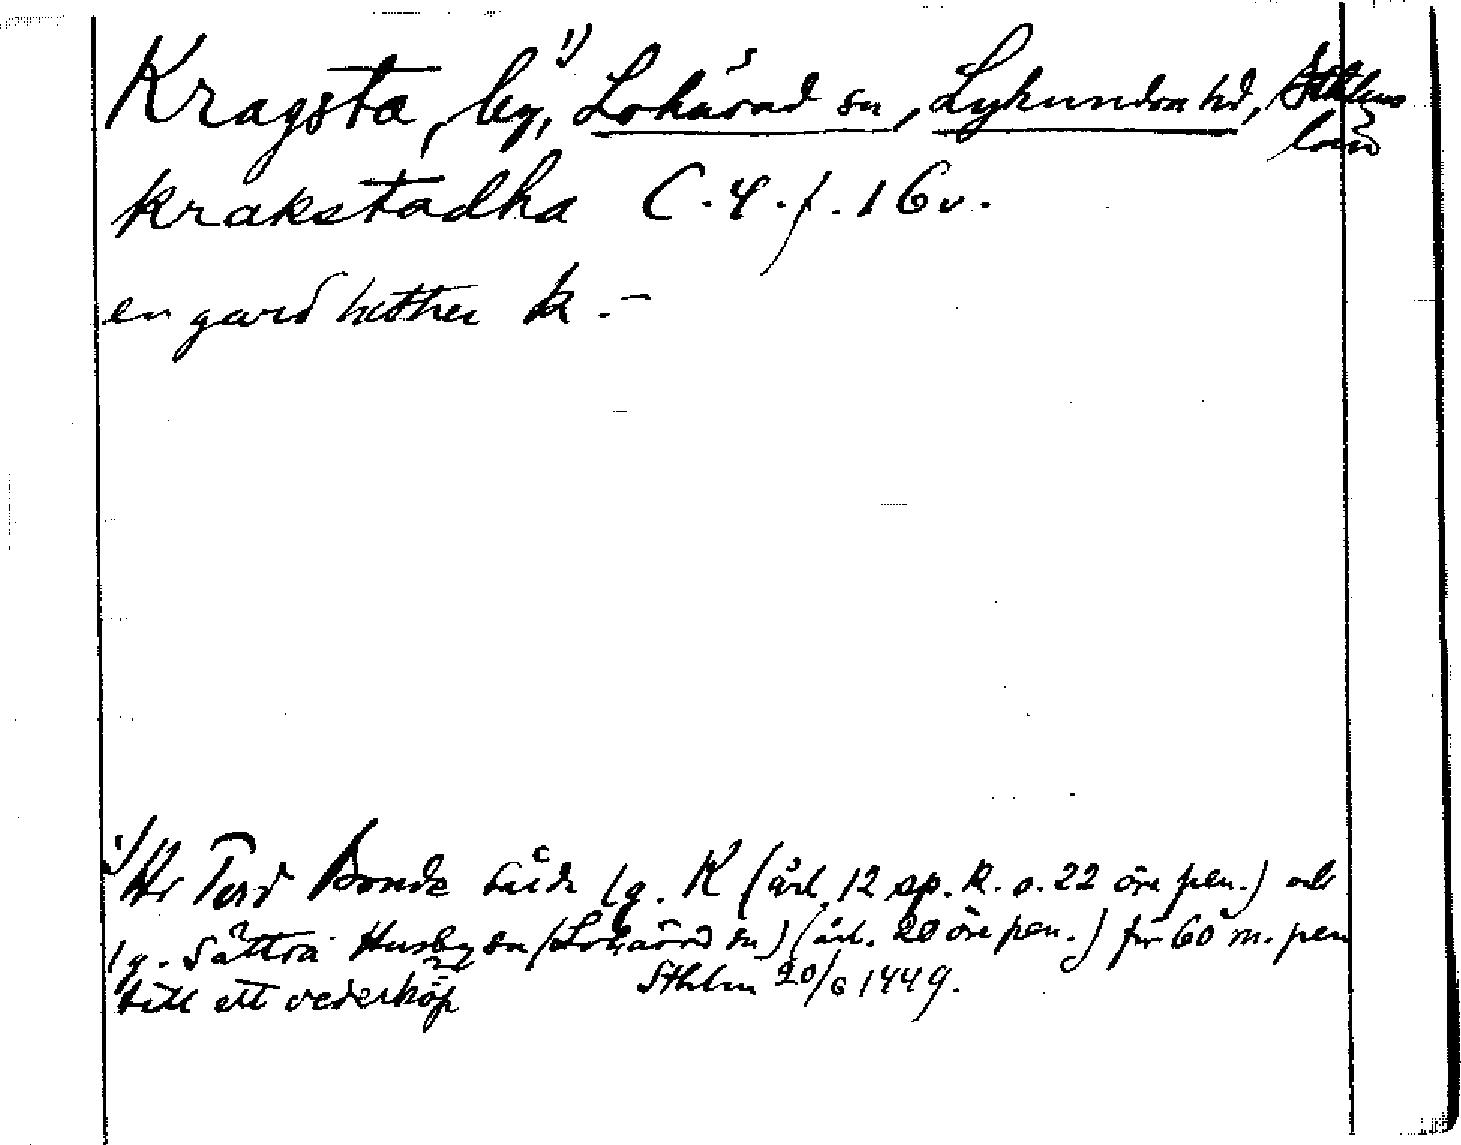 Kragsta, by,¹⁾ Lohärad sn, Lyhundra hd, Sthlms
län
krakstadha C.4.f.16v.
en gard hether k.-
¹⁾ Hr Tord Bonde 1g. K (årl. 12 sp. k. o. 22 öre pen.) och
1g. Sättra Husby sn (Lohärad sn) (årl. 20 öre pen.) för 60 m. pen
till ett vederköp Sthlm 20/6 1449.